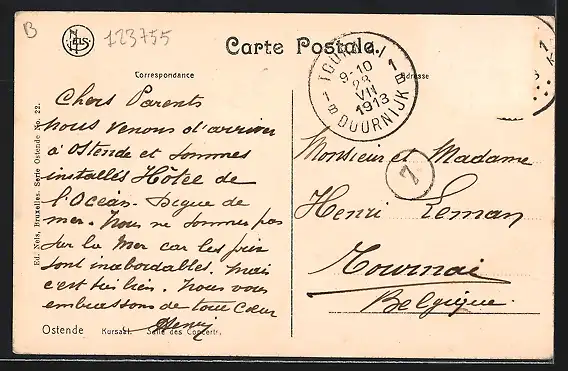 B
123755
Nels
Carte Postale.
Correspondance
Adresse
TOURNAI 1
9-10
28
VII
1913
1 B DOORNIJK B
7
Chers Parents
nous venons d'arriver
à Ostende et sommes
installés Hôtel de
l'Océan. Digue de
mer. Nous ne sommes pas
sur la mer car les prix
sont inabordables. Mais
c'est très bien. Nous vous
embrassons de tout cœur
Henry
Monsieur et Madame
Henri Leman
Tournai
Belgique.
Ed. Nels, Bruxelles. Serie Ostende No. 22.
Ostende Kursaal. Salle des Concerts.